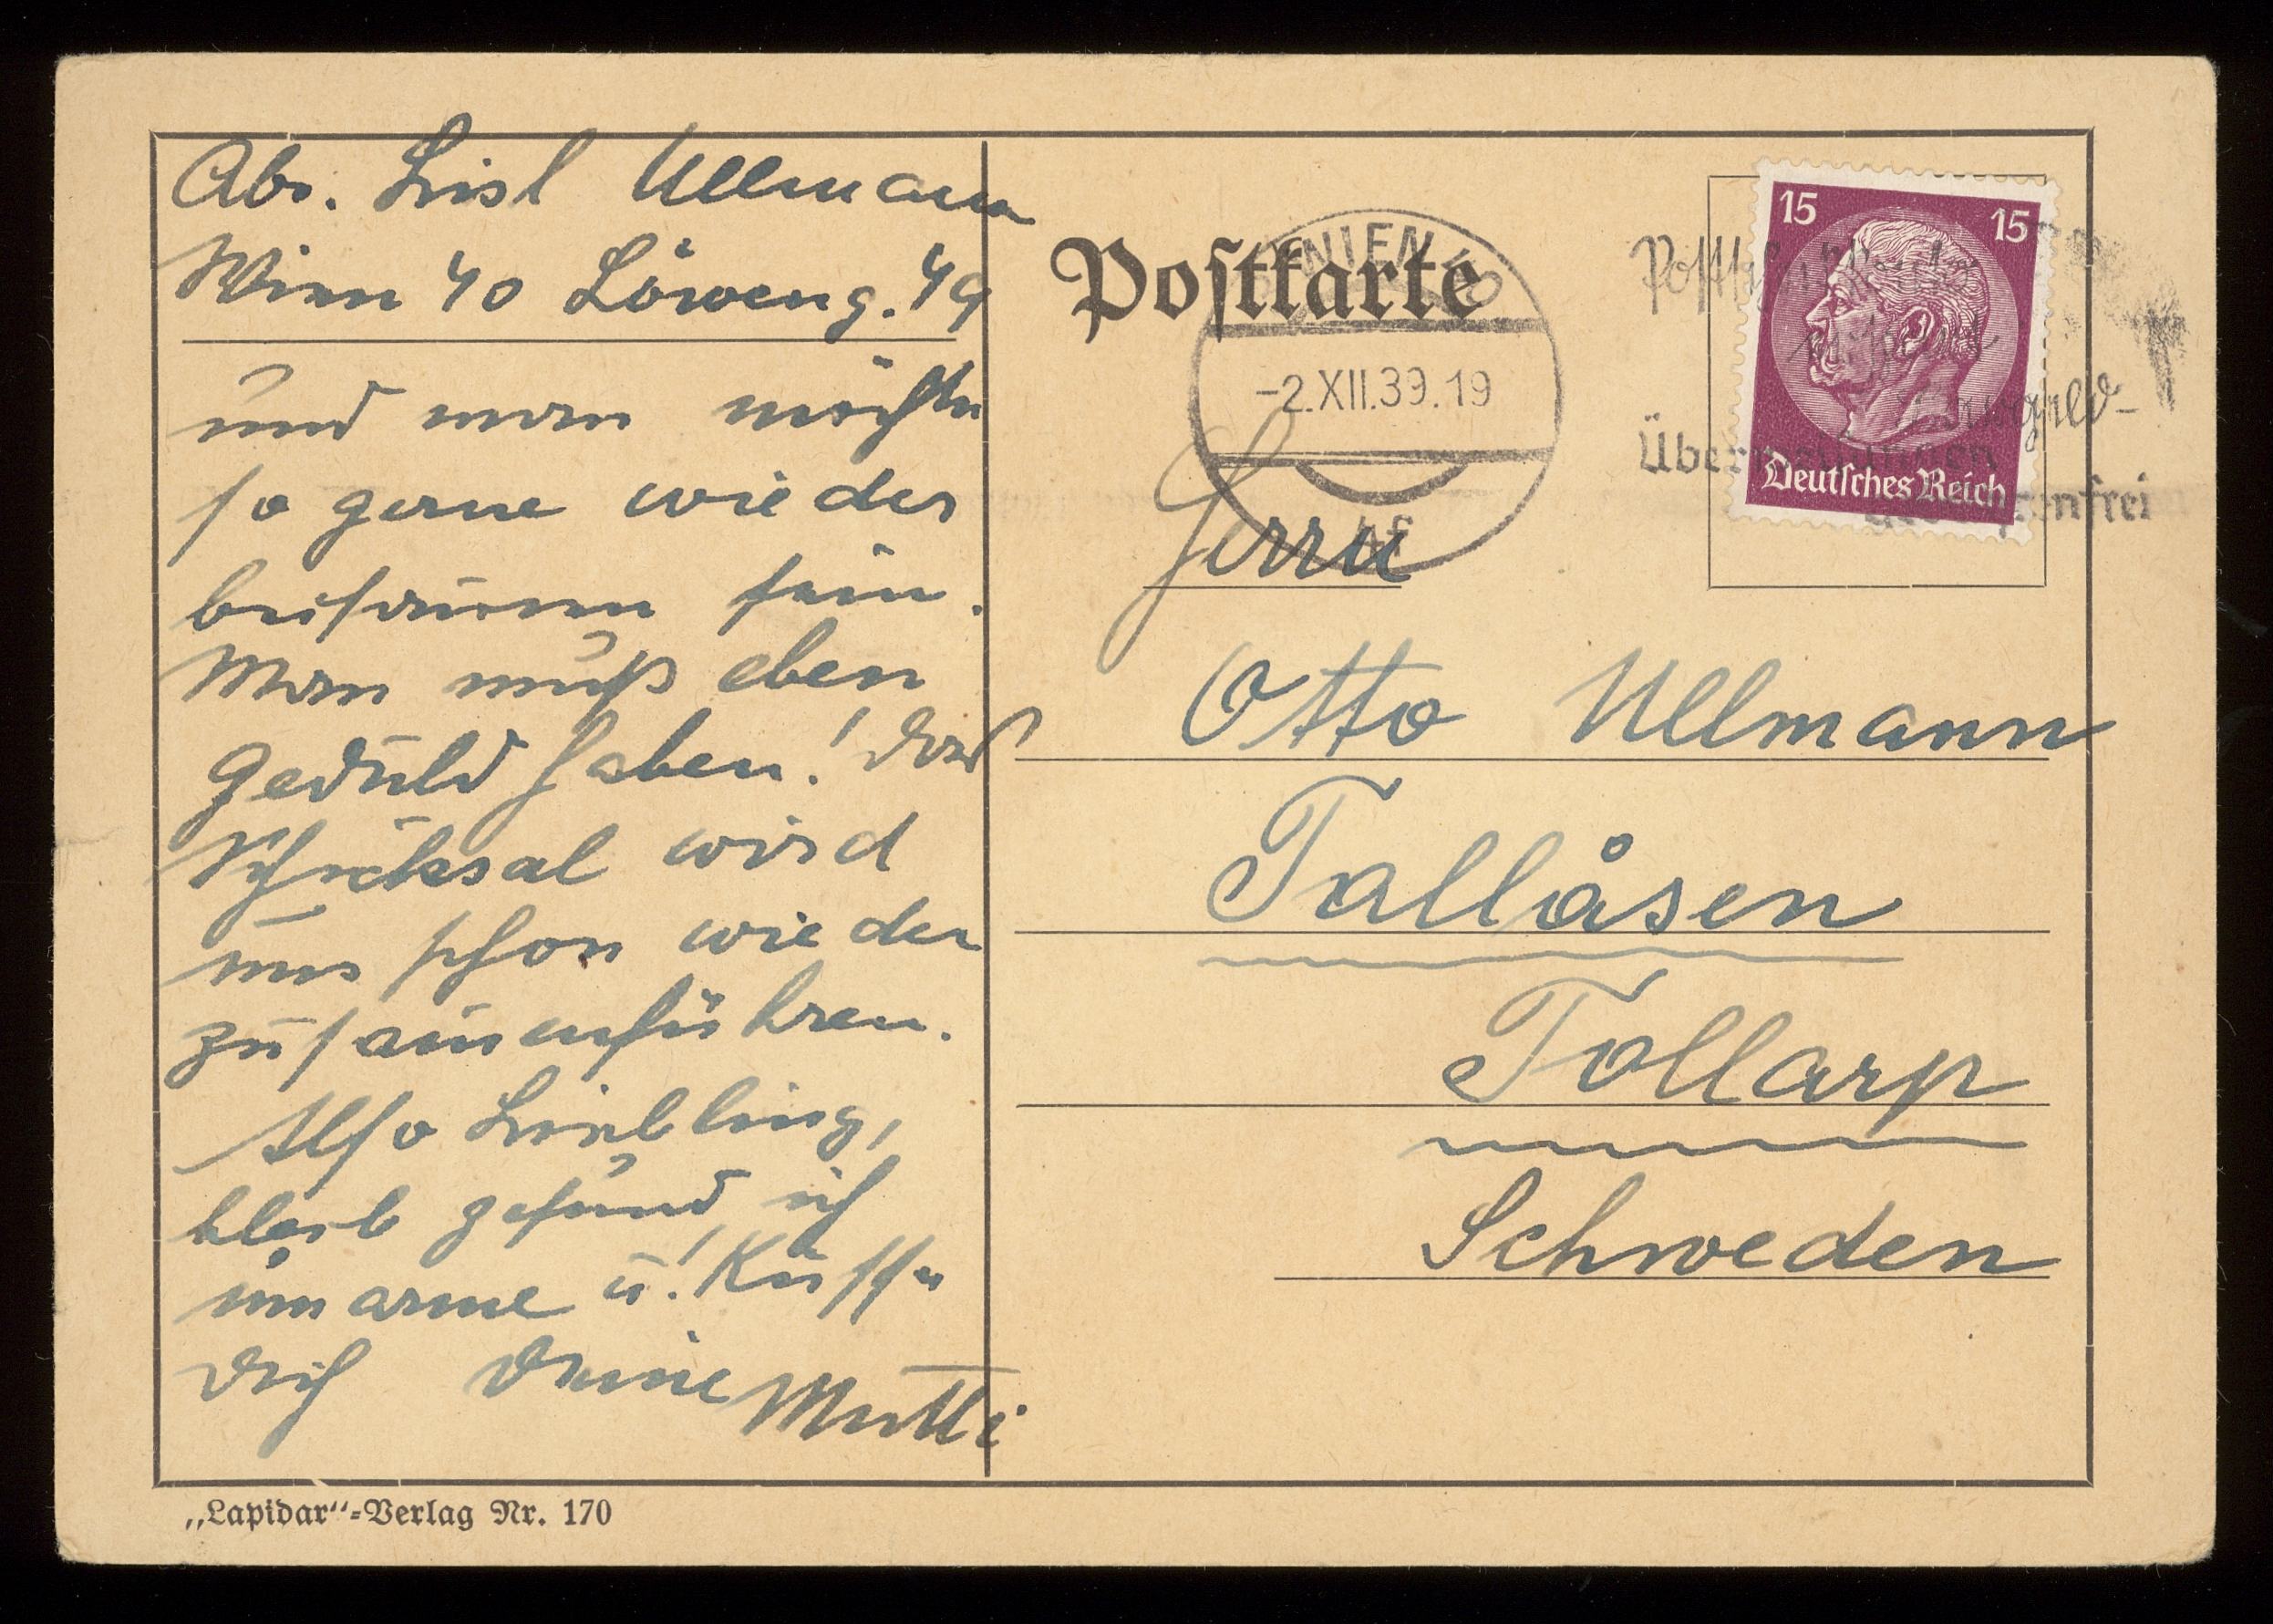 Abs. Lisl Ullmann
Wien 40 Löweng. 49
und man möchte
so gerne wieder
beisammen sein.
Man muß eben
Geduld haben! Das
Schicksal wird
uns schon wieder
zusam̄enführen.
Also Liebling,
bleib gesund, ich
umarme u.! Küsse
Dich Deine Mutti
Postkarte
WIEN 40
-2.XII.39.19
15 15
Über
gebührenfrei
Deutsches Reich
Herrn
Otto Ullmann
Tallåsen
Tollarp
Schweden
„Lapidar"-Verlag Nr. 170